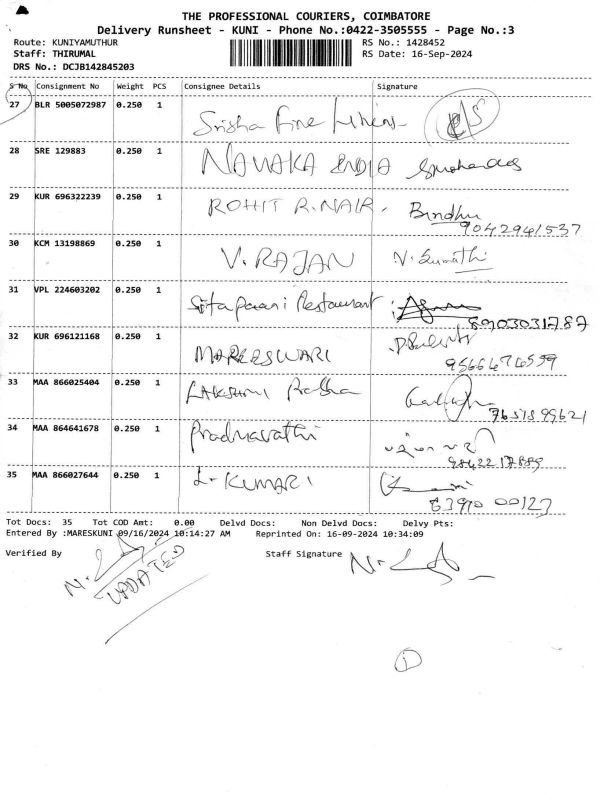 THE PROFESSIONAL COURIERS, COIMBATORE
Delivery Runsheet - KUNI - Phone No.:0422-3505555 - Page No.:3
Route: KUNIYAMUTHUR RS No.: 1428452
Staff: THIRUMAL RS Date: 16-Sep-2024
DRS No.: DCJB142845203
S No Consignment No Weight PCS Consignee Details Signature
27 BLR 5005072987 0.250 1 Srisha Fine
28 SRE 129883 0.250 1 NANAKA INDIA
29 KUR 696322239 0.250 1 ROHIT R. NAIR. Bindhu
9042941537
30 KCM 13198869 0.250 1 V. RAJAN N. Sumathi
31 VPL 224603202 0.250 1 Sitapaani Restaurant
8903031787
32 KUR 696121168 0.250 1 MAREESWARI
9566476599
33 MAA 866025404 0.250 1 LAKSHMI Prabha
34 MAA 864641678 0.250 1 Pradmavathi
9842217889
35 MAA 866027644 0.250 1 L. KUMARI
Tot Docs: 35 Tot COD Amt: 0.00 Delvd Docs: Non Delvd Docs: Delvy Pts:
Entered By :MARESKUNI 09/16/2024 10:14:27 AM Reprinted On: 16-09-2024 10:34:09
Verified By Staff Signature
UPDATED